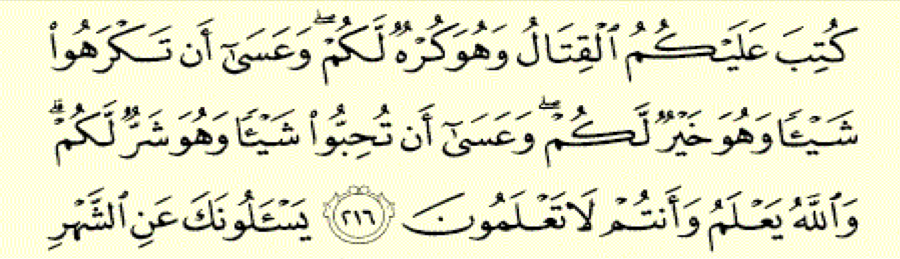 كُتِبَ عَلَيْكُمُ ٱلْقِتَالُ وَهُوَ كُرْهٌ لَّكُمْ ۖ وَعَسَىٰٓ أَن تَكْرَهُوا۟
شَيْـًٔا وَهُوَ خَيْرٌ لَّكُمْ ۖ وَعَسَىٰٓ أَن تُحِبُّوا۟ شَيْـًٔا وَهُوَ شَرٌّ لَّكُمْ ۗ
وَٱللَّهُ يَعْلَمُ وَأَنتُمْ لَا تَعْلَمُونَ ٢١٦ يَسْـَٔلُونَكَ عَنِ ٱلشَّهْرِ